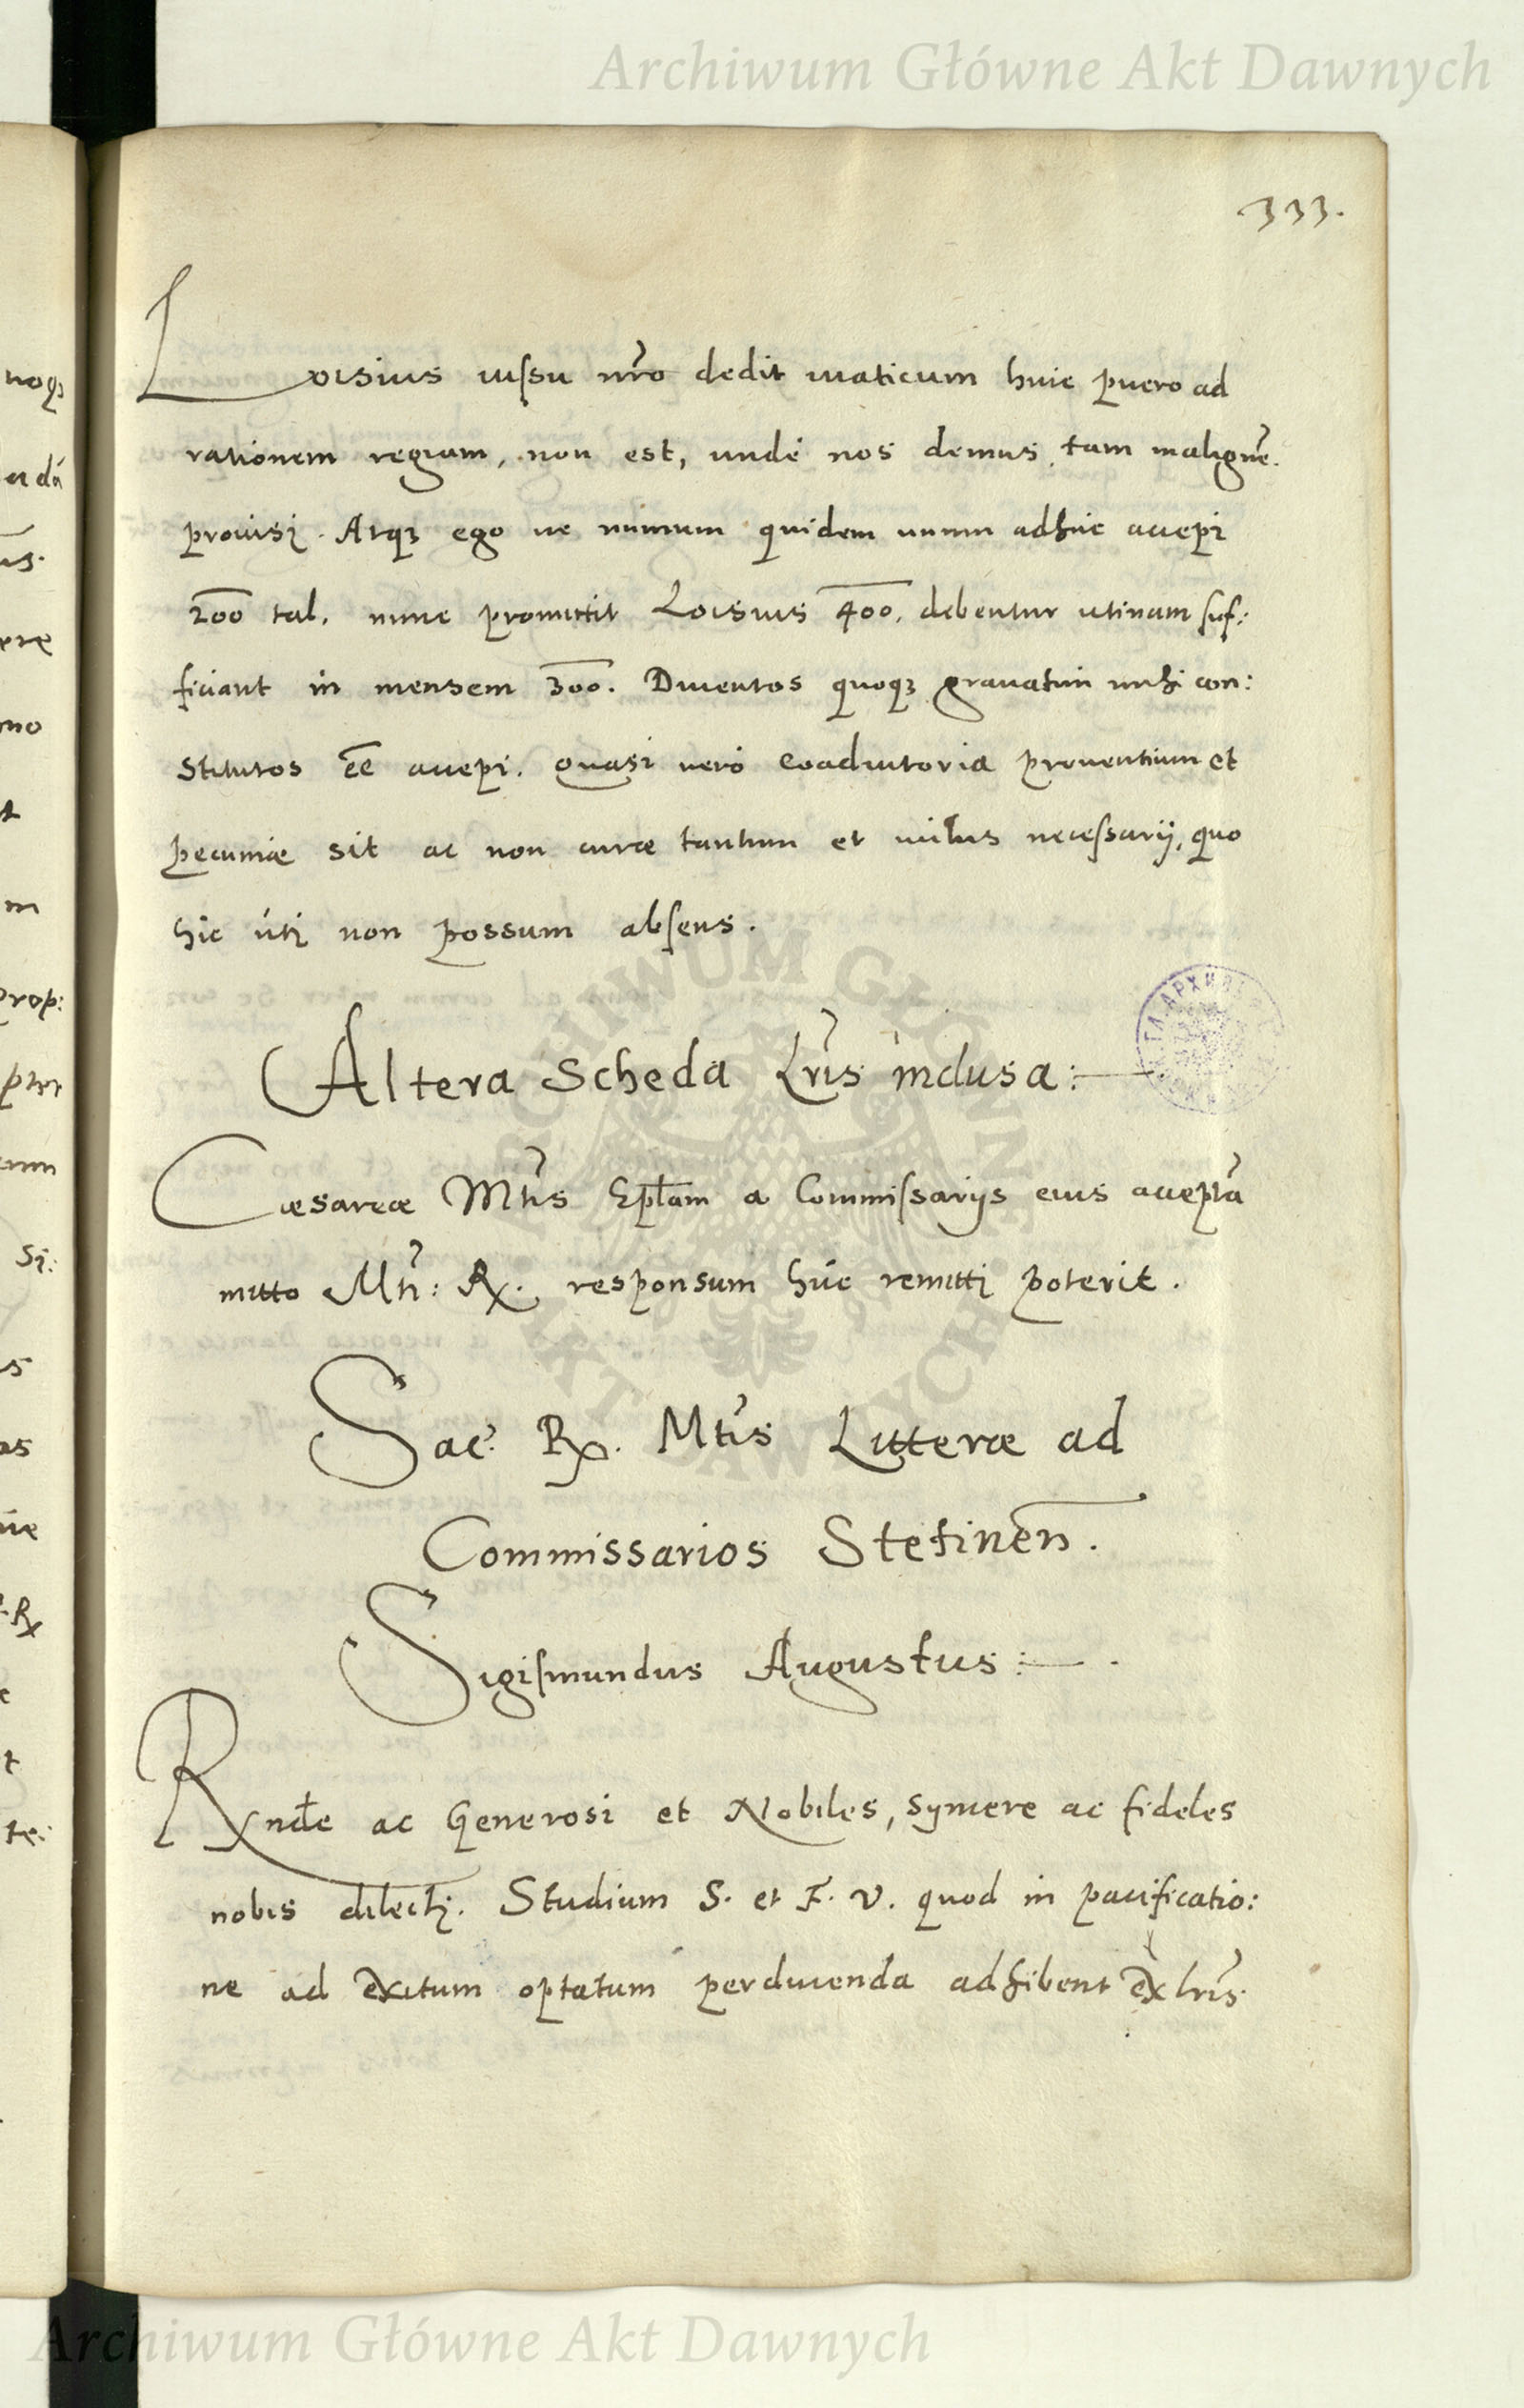 Archiwum Główne Akt Dawnych
333.
Loisius iussu nr̃o dedit viaticum huic puero ad
rationem regiam, non est, undé nos demus, tam malignẽ
provisi. Atqꝫ ego ne nimum quidem unum adhuc accepi
200 tal. nunc promittit Loisius 400. debentur utinam suf:
ficiant in mensem 300. Ducentos quoqꝫ gravatim mihi con:
stitutos eẽ accepi. quasi veró coadiutoria proventium et
pecuniæ sit ac non curæ tantum et victus necessarij, quo
hic úti non possum absens.
Altera Scheda Lrĩs inclusa:
Cæsareæ Mtĩs Epl̃am a Commissarijs eius acceptã
mitto Mtĩ: Rx. responsum húc remitti poterit.
Sac: Rx. Mtĩs Litteræ ad
Commissarios Stetinen̄.
Sigismundus Augustus:
Rxndẽ ac Generosi et Nobiles, syncere ac fideles
nobis dilecti. Studium S. et F. V. quod in pacificatio:
ne ad exitum optatum perducenda adhibent ex lrĩs
ARCHIWUM GŁÓWNE AKT DAWNYCH
Archiwum Główne Akt Dawnych